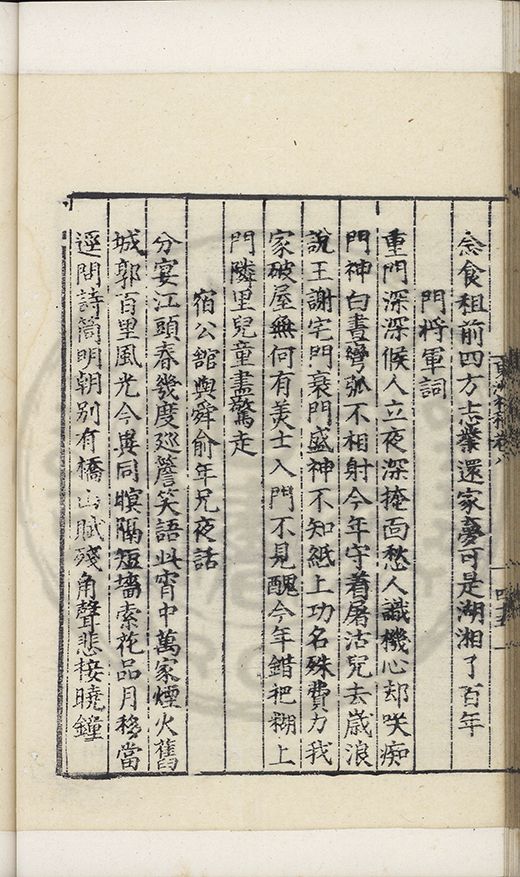 念食租前四方志業還家夢可是湖湘了百年
門將軍詞
重門深深候人立夜深掩面愁人識機心却咲痴
門神白晝彎弧不相射今年守着屠沽兒去歲浪
說王謝宅門衰門盛神不知紙上功名殊費力我
家破屋無何有美士入門不見醜今年錯把糊上
門隣里兒童盡驚走
宿公舘與舜俞年兄夜話
分宴江頭春幾度廵簷笑語此宵中萬家煙火舊
城郭百里風光今異同暝隔短墻索花品月移當
逕問詩筒明朝別有橋山賦殘角聲悲接曉鐘